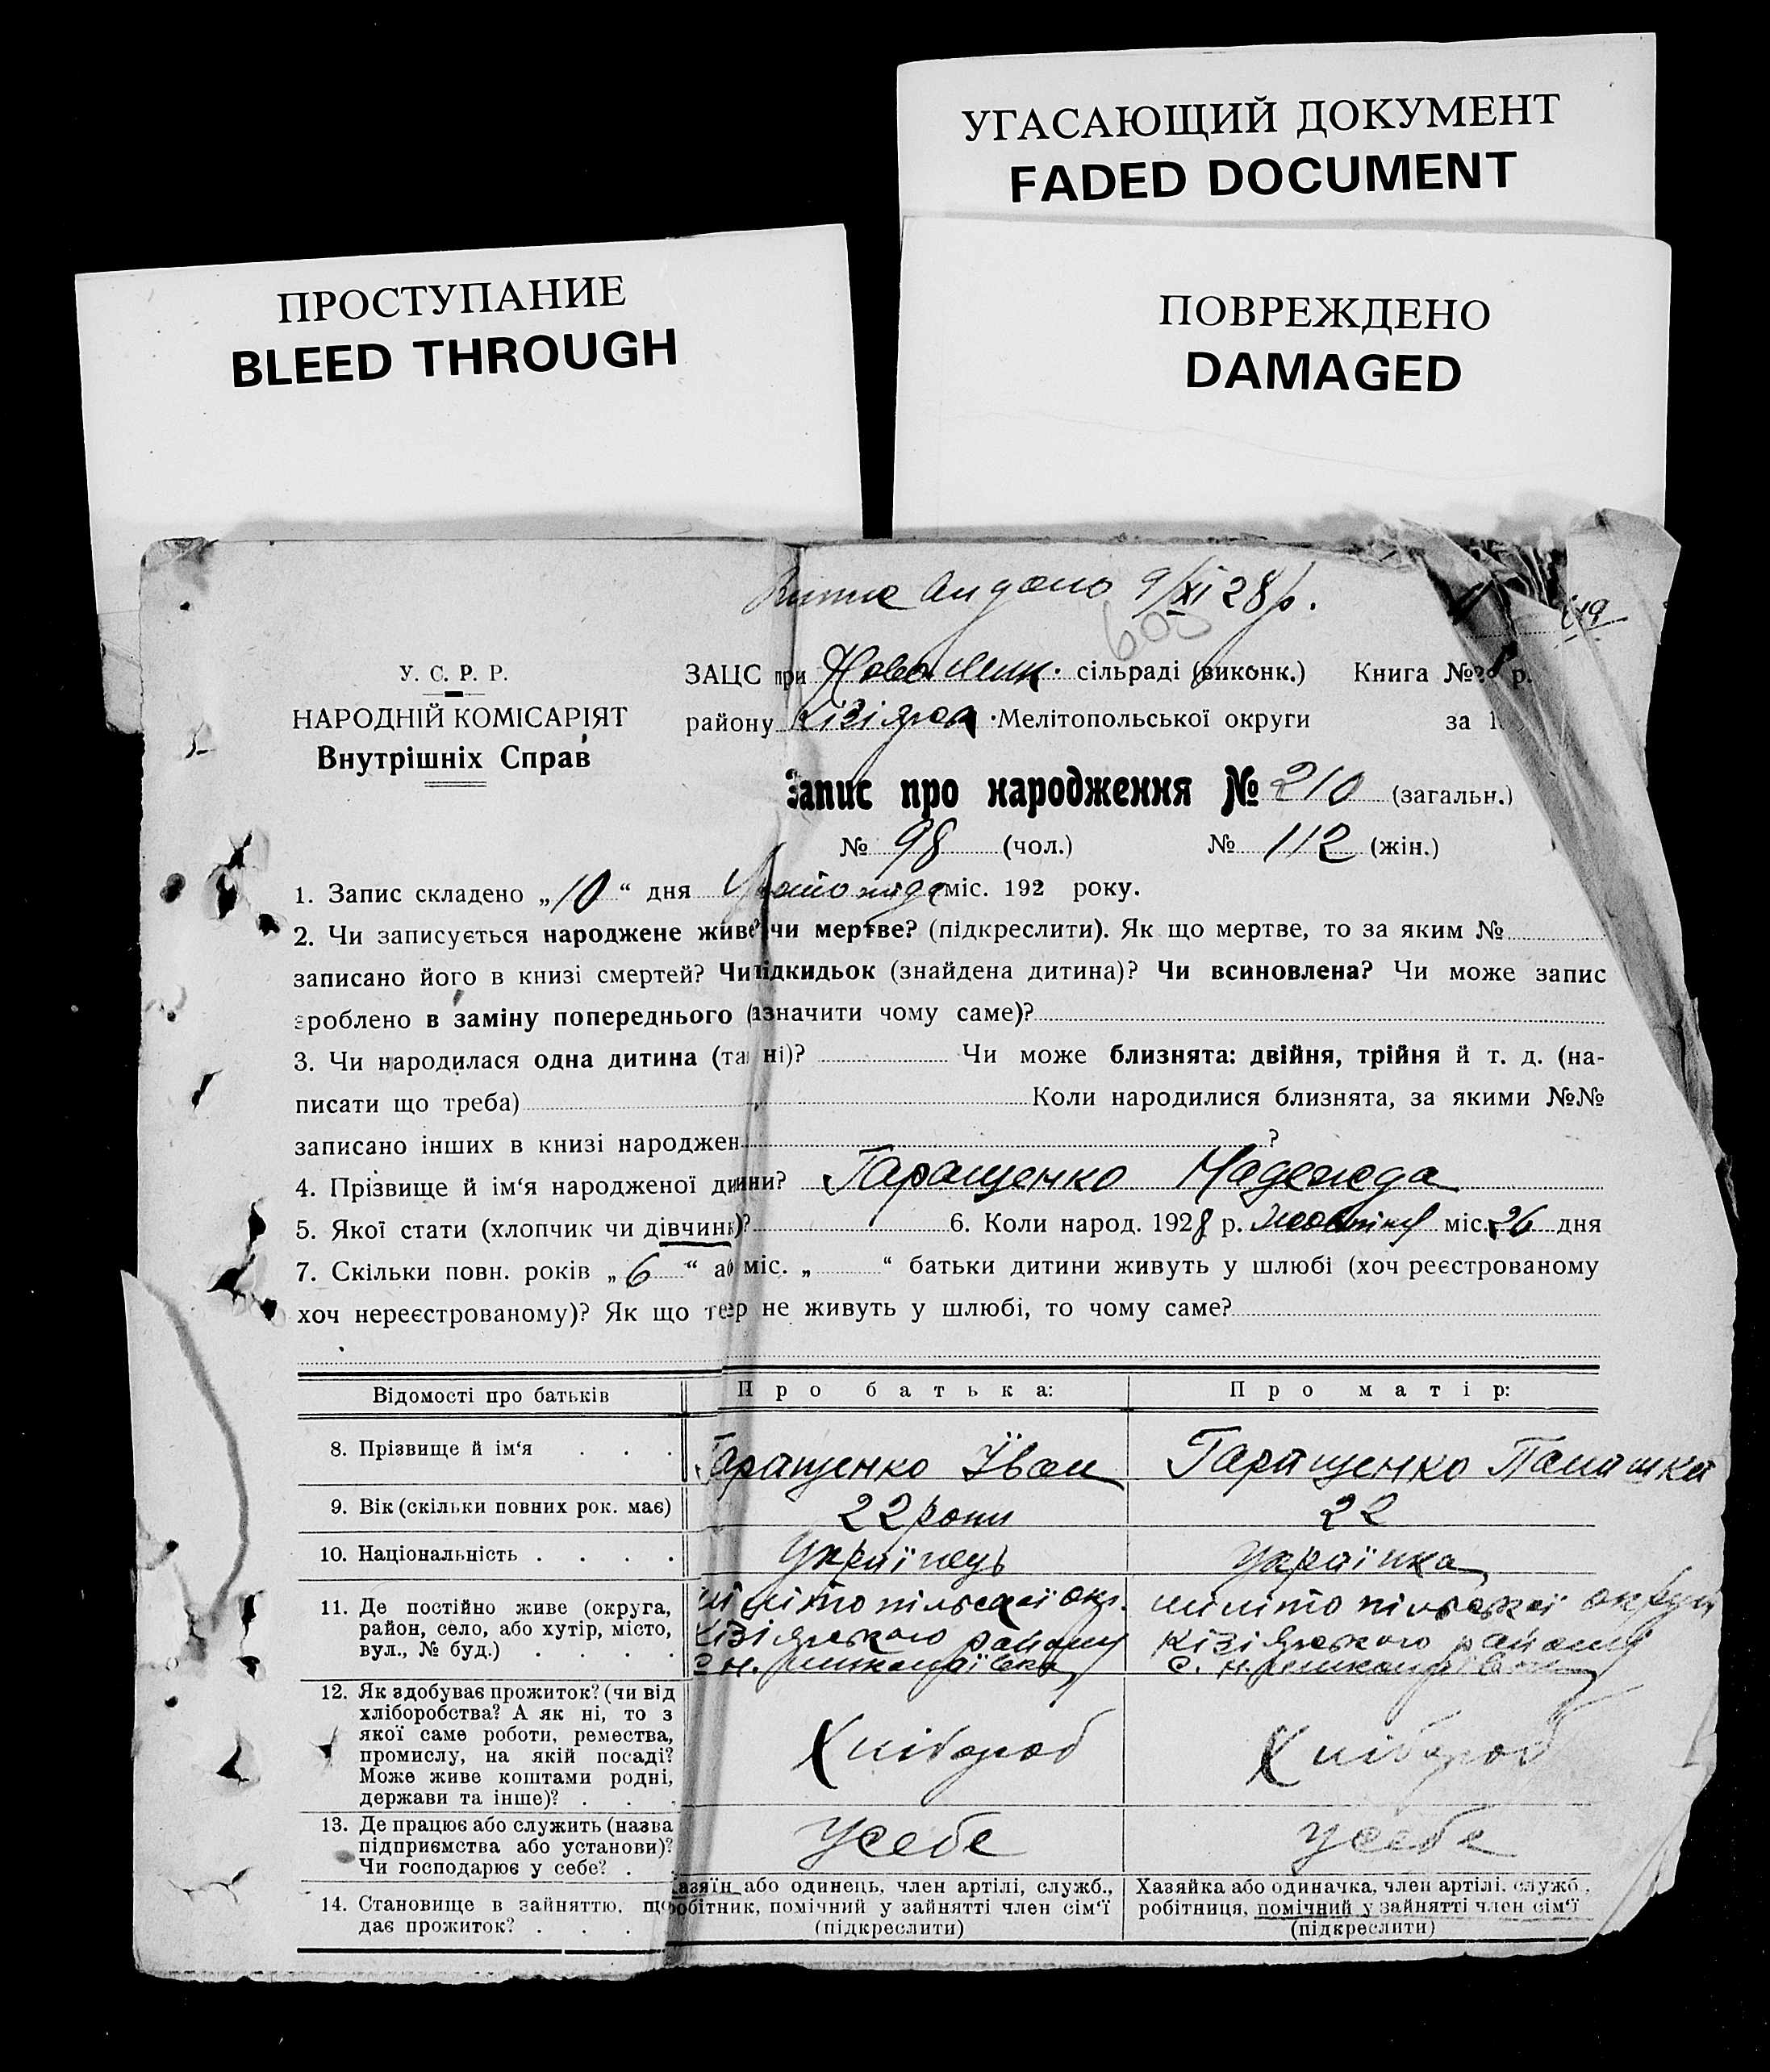 УГАСАЮЩИЙ ДОКУМЕНТ
FADED DOCUMENT
ПРОСТУПАНИЕ
BLEED THROUGH
ПОВРЕЖДЕНО
DAMAGED
9/XI 28 р.
603
У. С. Р. Р.
НАРОДНІЙ КОМІСАРІЯТ
Внутрішніх Справ
ЗАЦС при сільраді (виконк.) Книга №
району Кізіярськ. Мелітопольської округи за 1
Запис про народження № 210 (загальн.)
№ 98 (чол.) № 112 (жін.)
1. Запис складено „10“ дня міс. 192 року.
2. Чи записується народжене живе чи мертве? (підкреслити). Як що мертве, то за яким №
записано його в книзі смертей? Чи підкидьок (знайдена дитина)? Чи всиновлена? Чи може запис
зроблено в заміну попереднього (азначити чому саме)?
3. Чи народилася одна дитина (та ні)? Чи може близнята: двійня, трійня й т. д. (на-
писати що треба) Коли народилися близнята, за якими №№
записано інших в книзі народжен ?
4. Прізвище й ім‘я народженої дитини? Гаращенко Надежда
5. Якої стати (хлопчик чи дівчинк)? 6. Коли народ. 1928 р. міс. 26 дня
7. Скільки повн. років „6“ або міс. „ “ батьки дитини живуть у шлюбі (хоч реєстрованому
хоч нереєстрованому)? Як що тепер не живуть у шлюбі, то чому саме?
Відомості про батьків Про батька: Про матір:
8. Прізвище й ім‘я . . . Гаращенко Їван Гаращенко Парашка
9. Вік (скільки повних рок. має) 22 роки 22
10. Національність . . . . Українець Українка
11. Де постійно живе (округа,
район, село, або хутір, місто,
вул., № буд.) . . . .
мілітопільскої окр.
Кізіярського району
мілітопільскої округи
Кізіярського району
12. Як здобуває прожиток? (чи від
хліборобства? А як ні, то з
якої саме роботи, ремества,
промислу, на якій посаді?
Може живе коштами родні,
держави та інше)? . . .
Хлібороб Хлібороб
13. Де працює або служить (назва
підприємства або установи)?
Чи господарює у себе? . .
Усебе Усебе
14. Становище в зайняттю, що
дає прожиток? . . .
азяїн або одинець, член артілі, служб.,
робітник, помічний у зайнятті член сім‘ї
(підкреслити)
Хазяйка або одиначка, член артілі, служб.,
робітниця, помічний у зайнятті член сім‘ї
(підкреслити)